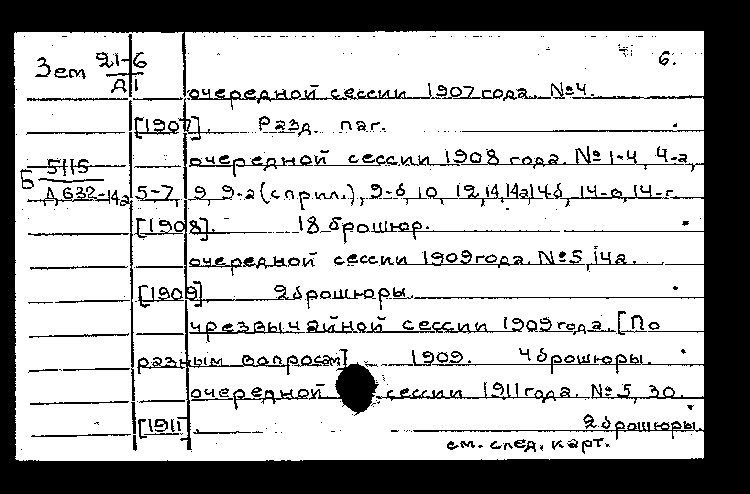 Зем 21-6 6.
Д1
очередной сессии 1907 года. №4.
[1907]. Разд. паг.
5115 очередной сессии 1908 года. №1-4, 4-а,
Б
Д 632-14а 5-7, 9, 9-а (с прил.), 9-б, 10, 12, 14, 14а, 14б, 14-в, 14-г.
[1908]. 18 брошюр.
очередной сессии 1909 года. №5, 14а.
[1909]. 2 брошюры.
чрезвычайной сессии 1909 года. [По
разным вопросам]. 1909. 4 брошюры.
очередной сессии 1911 года. №5, 30.
[1911]. 2 брошюры.
см. след. карт.